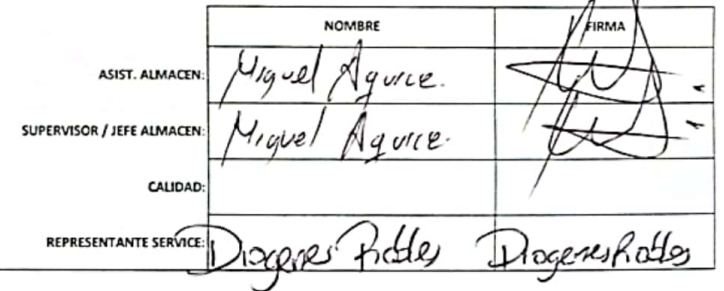 NOMBRE FIRMA
ASIST. ALMACEN: Miguel Aguirre.
SUPERVISOR / JEFE ALMACEN: Miguel Aguirre.
CALIDAD:
REPRESENTANTE SERVICE: Diogenes Robles Diogenes Robles